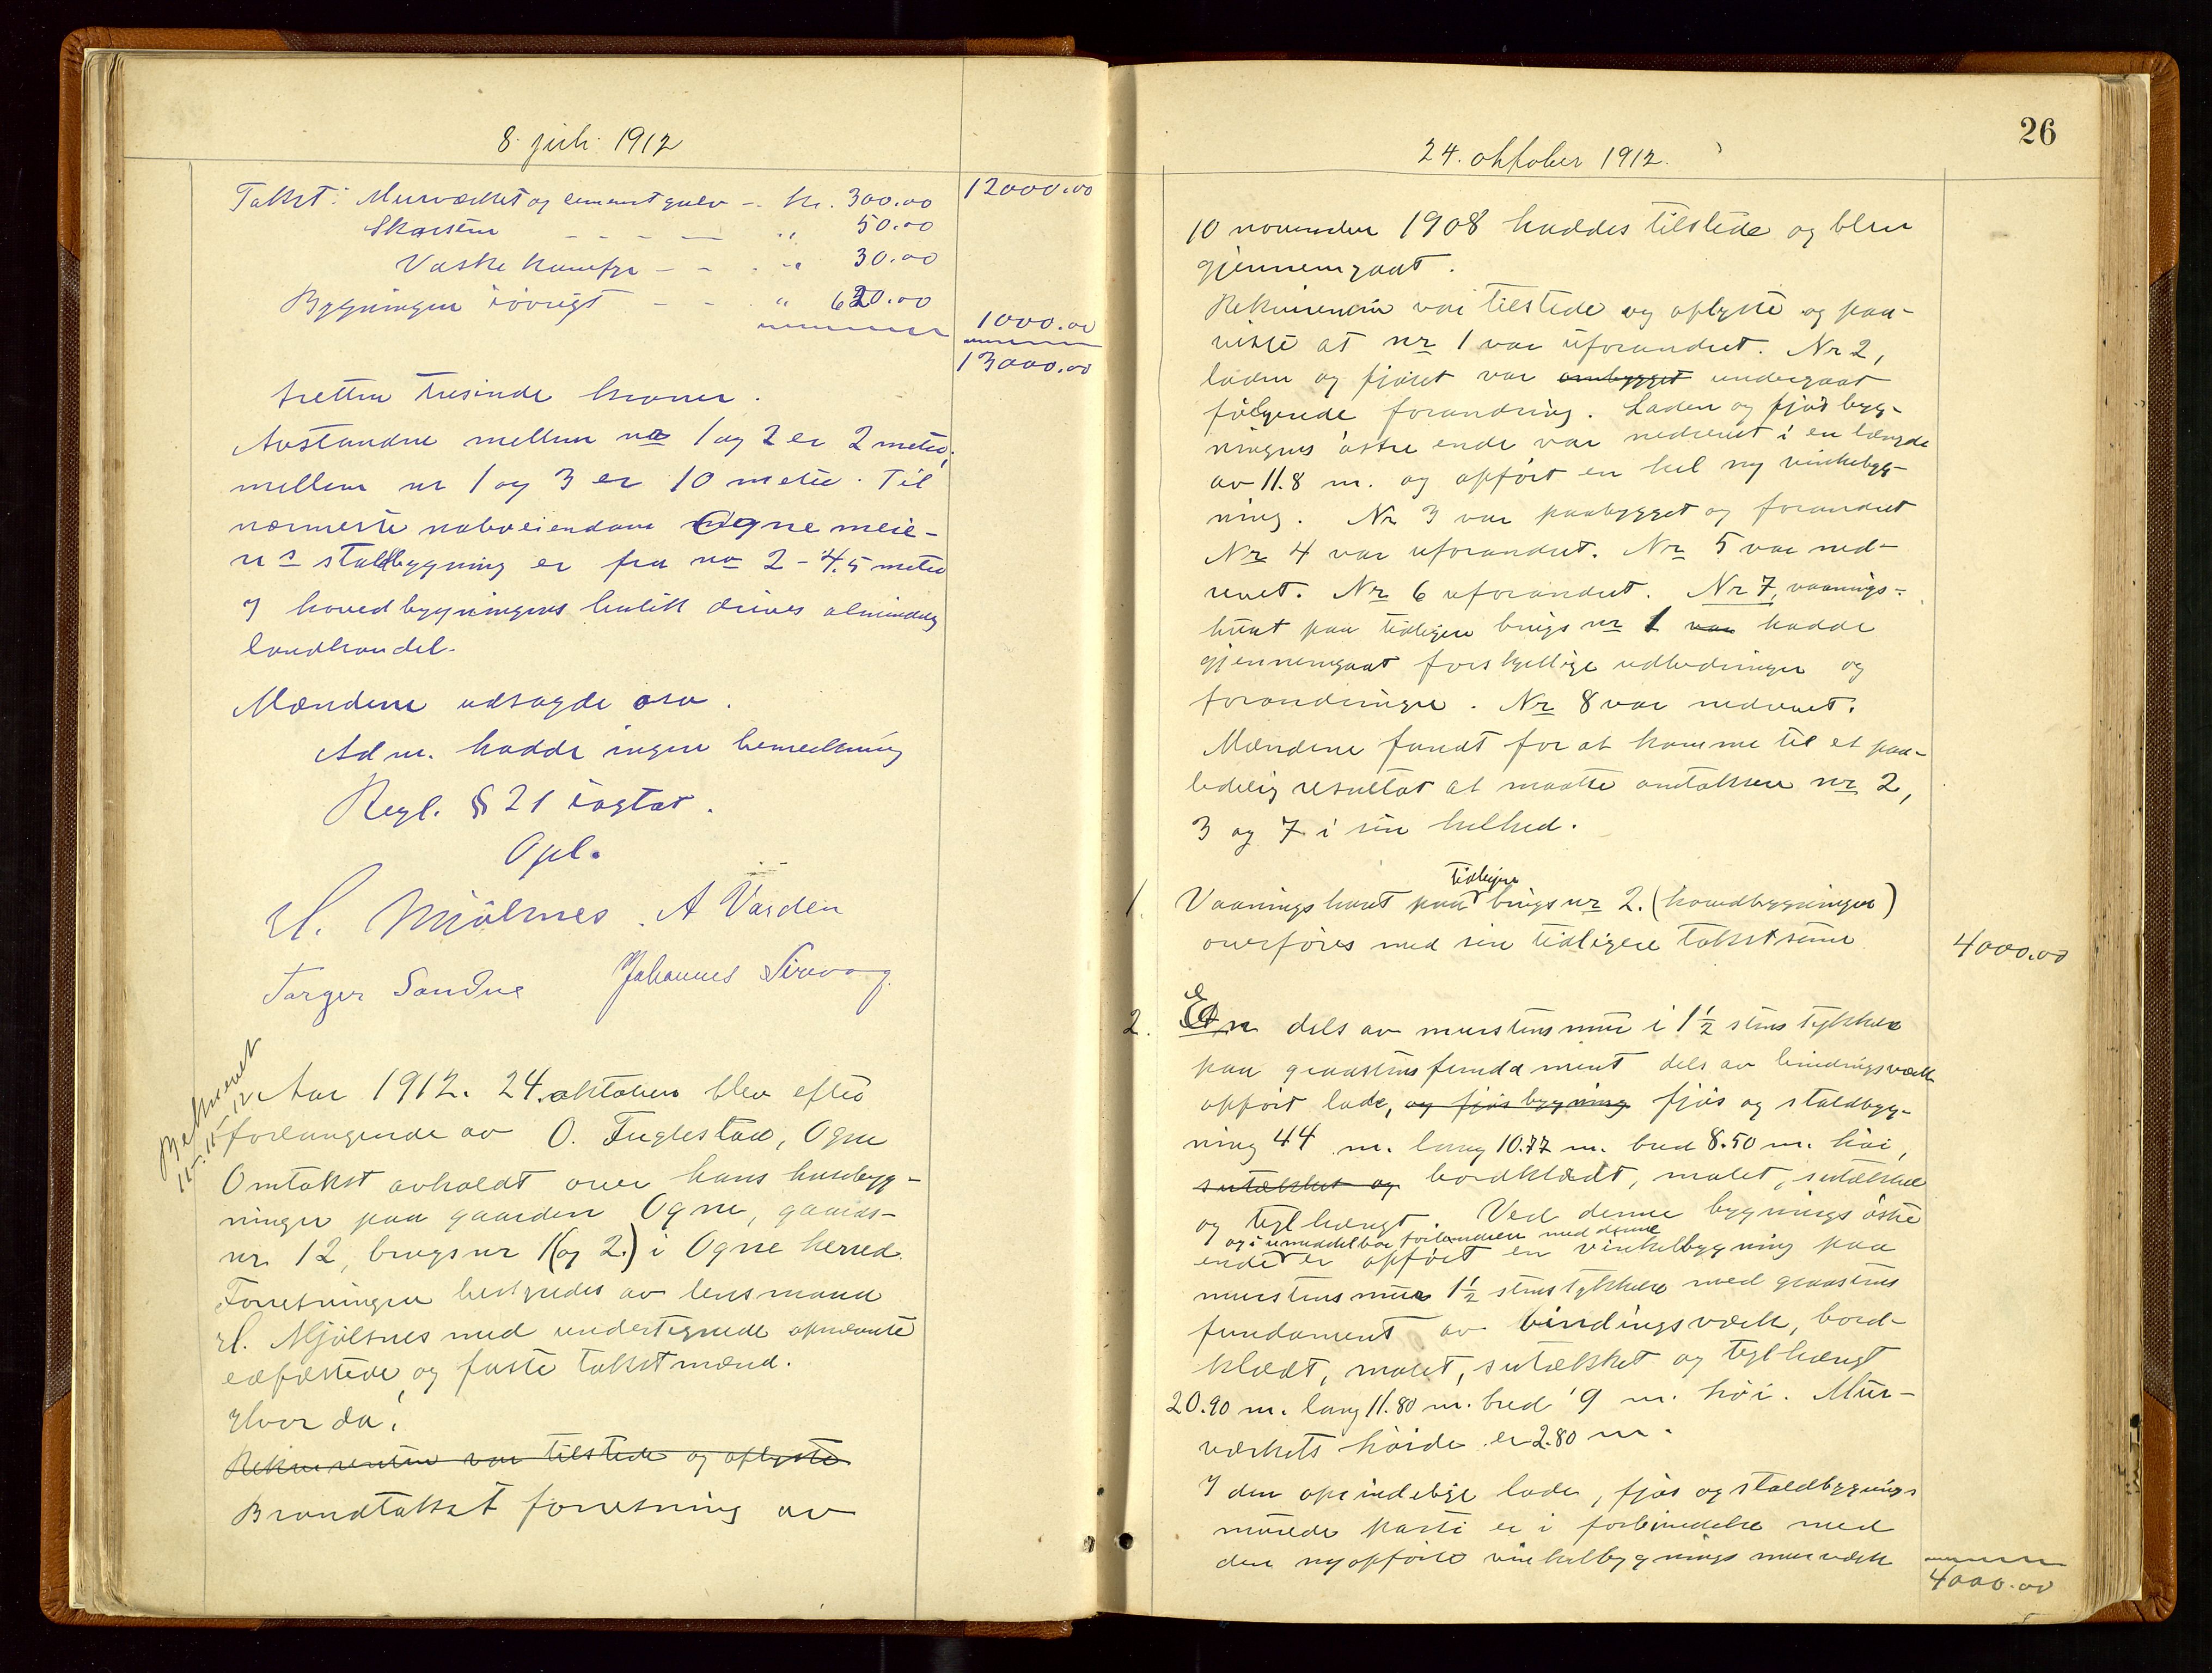 8. juli 1912
Takst: Murværket og cementgulv - kr. 300.00 12000.00
Skorsten - - - - " 50.00
Vaske komfyr - - - " 30.00
Bygningen iøvrigt - - " 620.00
1000.00
13000.00
tretten tusinde kroner.
Avstanden mellem no 1 og 2 er 2 meter,
mellem nr 1 og 3 er 10 meter. Til
nærmeste naboeiendom Ogne meie-
ris staldbygning er fra no 2 - 4.5 meter
I hovedbygningens butik drives almindelig
landhandel.
Mændene udsagde osv.
Adm. hadde ingen bemerkning
Regl. § 21 iagtat.
Opl.
H. Mjölsnes. A Varden
Torger Sandve Johannes Sirevog
Bekrævet
15-12
Aar 1912. 24. oktober blev efter
forlangende av O. Fuglestad, Ogne
Omtakst avholdt over hans husebyg-
ninger paa gaarden Ogne, gaards-
nr. 12, brugsnr 1(og 2.) i Ogne herred.
Forretningen bestyredes av lensmand
H. Mjölsnes med undertegnede opnævnte
edfæstede og faste takstmænd.
Hvor da:
Rekvirenten var tilstede og oplyste
Brandtakst forretning av
26
24. oktober 1912.
10 november 1908 haddes tilstede og blev
gjennemgaat.
Rekvirenten var tilstede og oplyste og paa-
viste at nr 1 var uforandret. Nr 2,
laden og fjøset var ombygget undergaat
følgende forandring. Laden og fjøsbyg-
ningens østre ende var nedrevet i en længde
av 11.8 m. og opført en hel ny vinkelbyg-
ning. Nr 3 var paabygget og forandret
Nr 4 var uforandret. Nr 5 var ned-
revet. Nr 6 uforandret. Nr 7, vaanings-
huset paa tidligere brugs nr 1 var hadde
gjennemgaat forskjellige udbedringer og
forandringer. Nr 8 var nedrevet.
Mændene fandt for at komme til et paa-
lidelig resultat at maatte omtaksere nr 2,
3 og 7 i sin helhed.
tidligere
1. Vaaningshuset paa brugsnr 2. (hovedbygningen)
overføres med sin tidligere takstsum 4000.00
2. En dels av murstensmur i 1½ stens tykkelse
paa graastensfundament dels av bindingsværk
opført lade, og fjøs bygning fjøs og staldbyg-
ning 44 m. lang 10.77 m. bred 8.50 m. høi,
sutækket og bordklædt, malet, sutækket
og teglhængt. Ved denne bygnings østre
og i umiddelbar forbindelse med denne
ende er opført en vinkelbygning paa
murstensmur 1½ stens tykkelse med graastens
fundament av bindingsværk, bord-
klædt, malet, sutækket og teglhængt
20.90 m. lang 11.80 m. bred 9 m. høi. Mur-
værkets høide er 2.80 m.
I den oprindelige lade, fjøs og staldbygnings
murede parti er i forbindelse med
den nyopførte vinkelbygnings murværk
4000.00